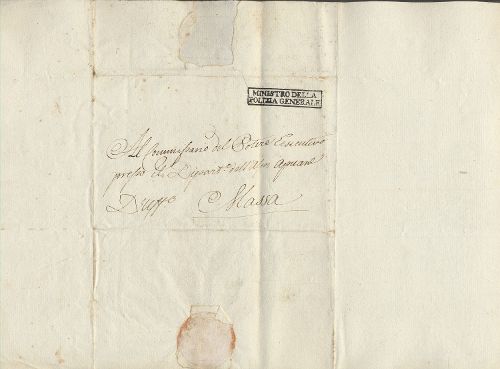 MINISTRO DELLA
POLIZIA GENERALE
Al Commissario del Potere Esecutivo
presso il Dipart.o dell'Alpi Apuane
Massa